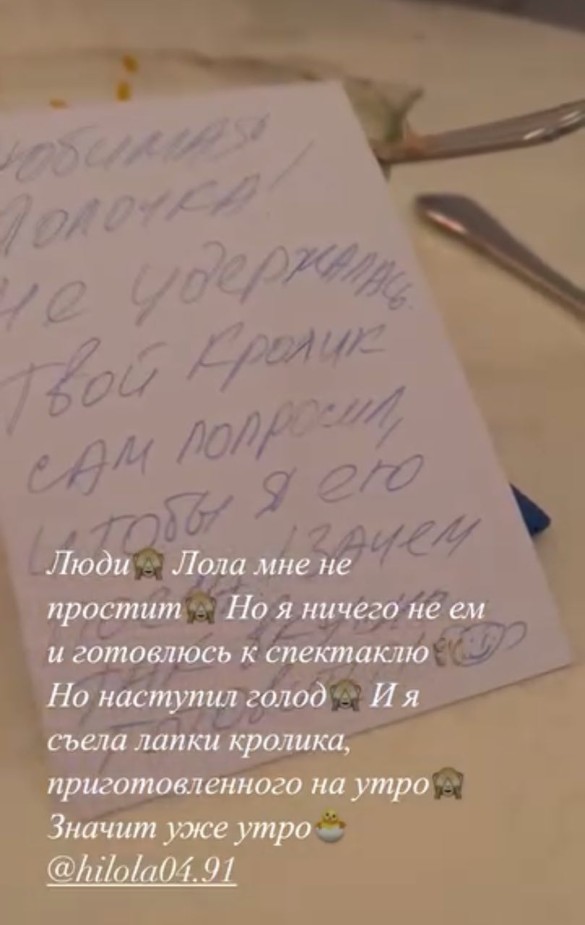 Любимая
Лолочка!
Не удержалась.
Твой кролик
сам попросил,
чтобы я его
Зачем
Люди🙈 Лола мне не
простит🙈 Но я ничего не ем
и готовлюсь к спектаклю
Но наступил голод🙈 И я
съела лапки кролика,
приготовленного на утро🙈
Значит уже утро🐣
@hilola04.91